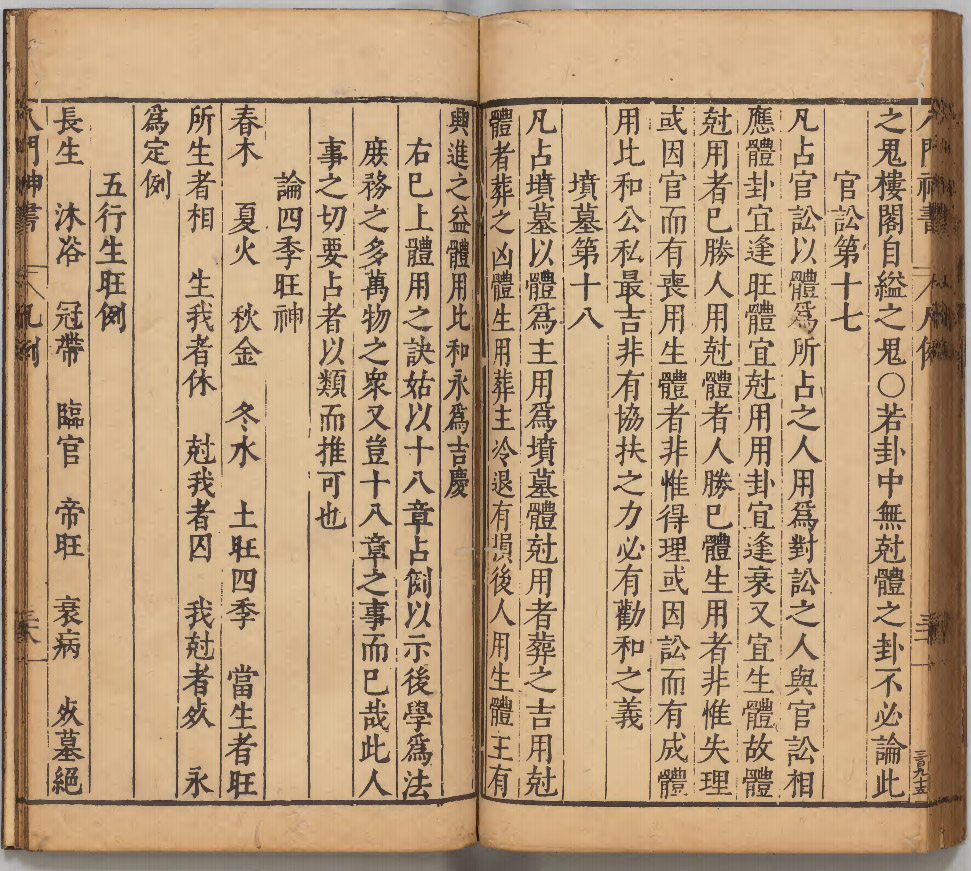 之鬼樓閣自縊之鬼〇若卦中無尅體之卦不必論此
官訟第十七
凡占官訟以體爲所占之人用爲對訟之人與官訟相
應體卦宜逢旺體宜尅用用卦宜逢衰又宜生體故體
尅用者已勝人用尅體者人勝已體生用者非惟失理
或因官而有喪用生體者非惟得理或因訟而有成體
用比和公私最吉非有協扶之力必有勸和之義
墳墓第十八
凡占墳墓以體爲主用爲墳墓體尅用者葬之吉用尅
體者葬之凶體生用葬主冷退有損後人用生體主有
興進之益體用比和永爲吉慶
右已上體用之訣姑以十八章占例以示後學爲法
庻務之多萬物之衆又豈十八章之事而已哉此人
事之切要占者以類而推可也
論四季旺神
春木 夏火 秋金 冬水 土旺四季 當生者旺
所生者相 生我者休 尅我者囚 我尅者㱙 永
爲定例
五行生旺例
長生 沐浴 冠帶 臨官 帝旺 衰病 㱙墓絕